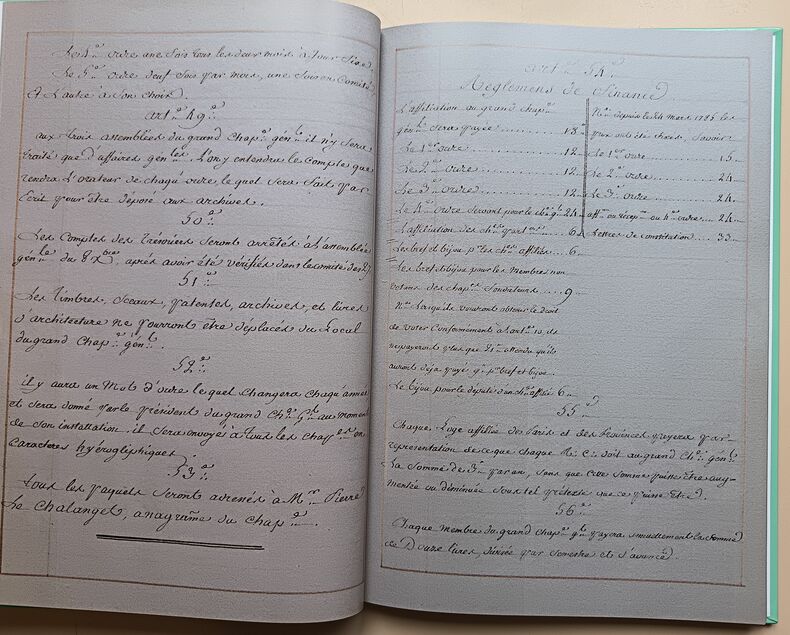 Le 4.e ordre une fois tous les deux mois à jour fixe.
Le 5.e ordre neuf fois par mois, une fois en Comité
et l'autre à son choix.
art.e 49.e
aux trois assemblées du grand Chap.e gén.al il n'y sera
traité que d'affaires gén.les. L'on y entendra le compte que
rendra l'orateur de chaqu'ordre, lequel sera fait par
Ecrit pour être déposé aux archives.
50.e
Les Comptes des trésoriers seront arrêtés à l'assemblée
gén.le du 8.X.bre, après avoir été vérifiés dans les comités des
51.e
Les timbres, sceaux, patentes, archives, et livres
d'architecture ne pourront être déplacés du Local
du grand Chap.e gén.al.
52.e
il y aura un Mot d'ordre lequel changera chaqu'année
et sera donné par le président du grand Ch.e G.al au moment
de son installation. il sera envoyé à tous les chap.es en
Caractères hyérogliphiques.
53.e
tous les paquets seront adressés à M.r Pierre
Le Chalanget, anagrame du chap.e
art.e 54.e
Reglemens de finance
L'affiliation au grand chap.e
gén.al sera payée ........ 18
Le 1.er ordre ........ 12
Le 2.e ordre ........ 12
Le 3.e ordre ........ 12
Le 4.e ordre servant pour le ch.e g.al 24
L'affiliation des ch.es part.ers 6
Les bref et bijou p.r les ch.es affiliés .. 6
Les bref et bijou pour les membres non
des chap.es fondateurs .... 9
N.a lorsqu'ils voudront obtenir le droit
de voter Conformément à l'art.e 10, ils
ne payeront plus que 21 attendu qu'ils
auront déjà payés 9 p.r bref et bijou.
Le bijou pour le député d'un ch.e affilié 6
N.a depuis le 24 mars 1785 les
prix ont été fixés, Savoir
Le 1.er ordre .... 15
Le 2.e ordre .... 24
Le 3.e ordre .... 24
aff.on ou récep.on au 4.e ordre .... 24
Lettres de constitution .... 33
55.e
Chaque Loge affiliée des Paris et des Provinces payera par
représentation de ce que chaque R. C. doit au grand Ch.e gén.al
La Somme de 3 par an, sans que cette somme puisse être aug-
mentée ou diminuée sous tel prétexte que ce puisse être.
56.e
Chaque membre du grand chap.e g.al payera annuellement la somme
de Douze livres, divisée par semestre et d'avance.